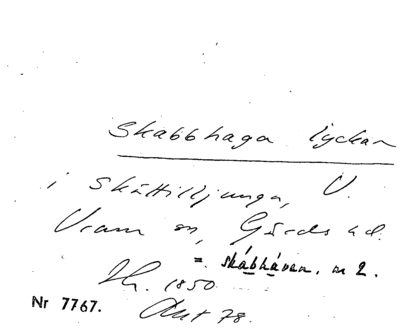 Skabbhaga lyckan
i Skättilljunga, V.
Vram sn, Gärds hd.
= skábhávan, m 2.
Lh. 1850
Akt 78.
Nr 7767.